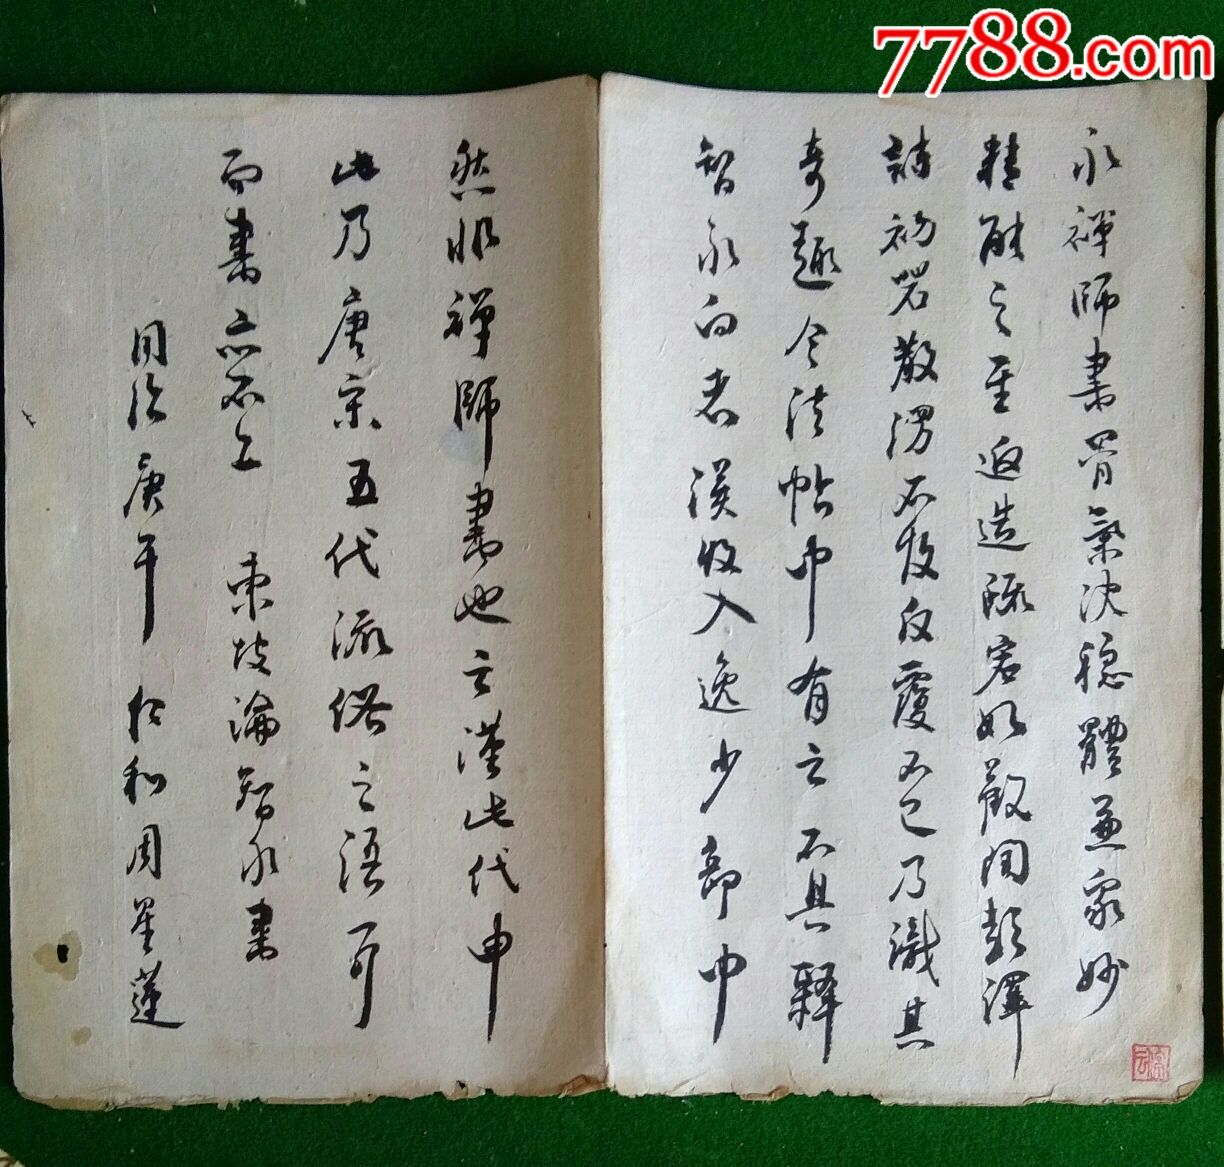 7788.com
永禪師書骨氣深穩體兼衆妙
精能之至返造疏宕如觀陶彭澤
詩初若散漫不收反覆不已乃識其
奇趣今法帖中有云不具釋
智永白者誤收入逸少部中
然非禪師書也云謹此代申
此乃唐宋五代流俗之語耳
而書亦不工 東坡論智永書
同治庚午 仁和周星蓮